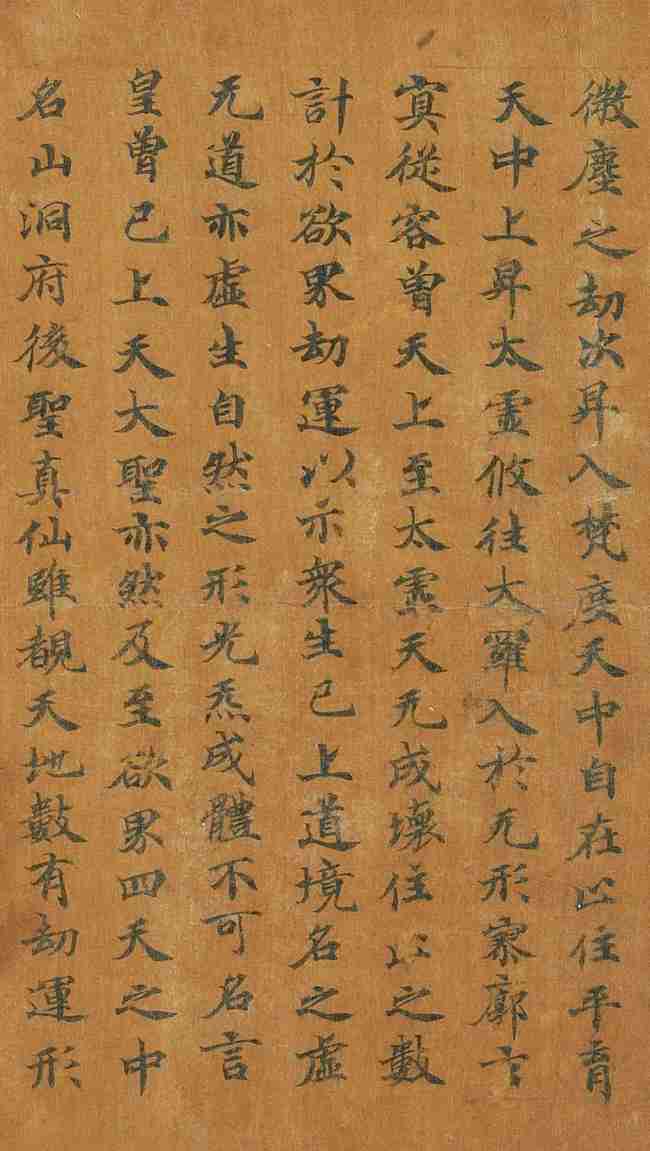 微塵之劫次昇入梵度天中自在以住平育
天中上昇太霊倏往大羅入於无形寥廓玄
㝠從容曾天上至太霊天无成壞住以之數
計於欲界劫運以示衆生已上道境名之虛
无道亦虛生自然之形光炁成體不可名言
皇曾已上天大聖亦然及至欲界四天之中
名山洞府後聖真仙雖覩天地數有劫運形